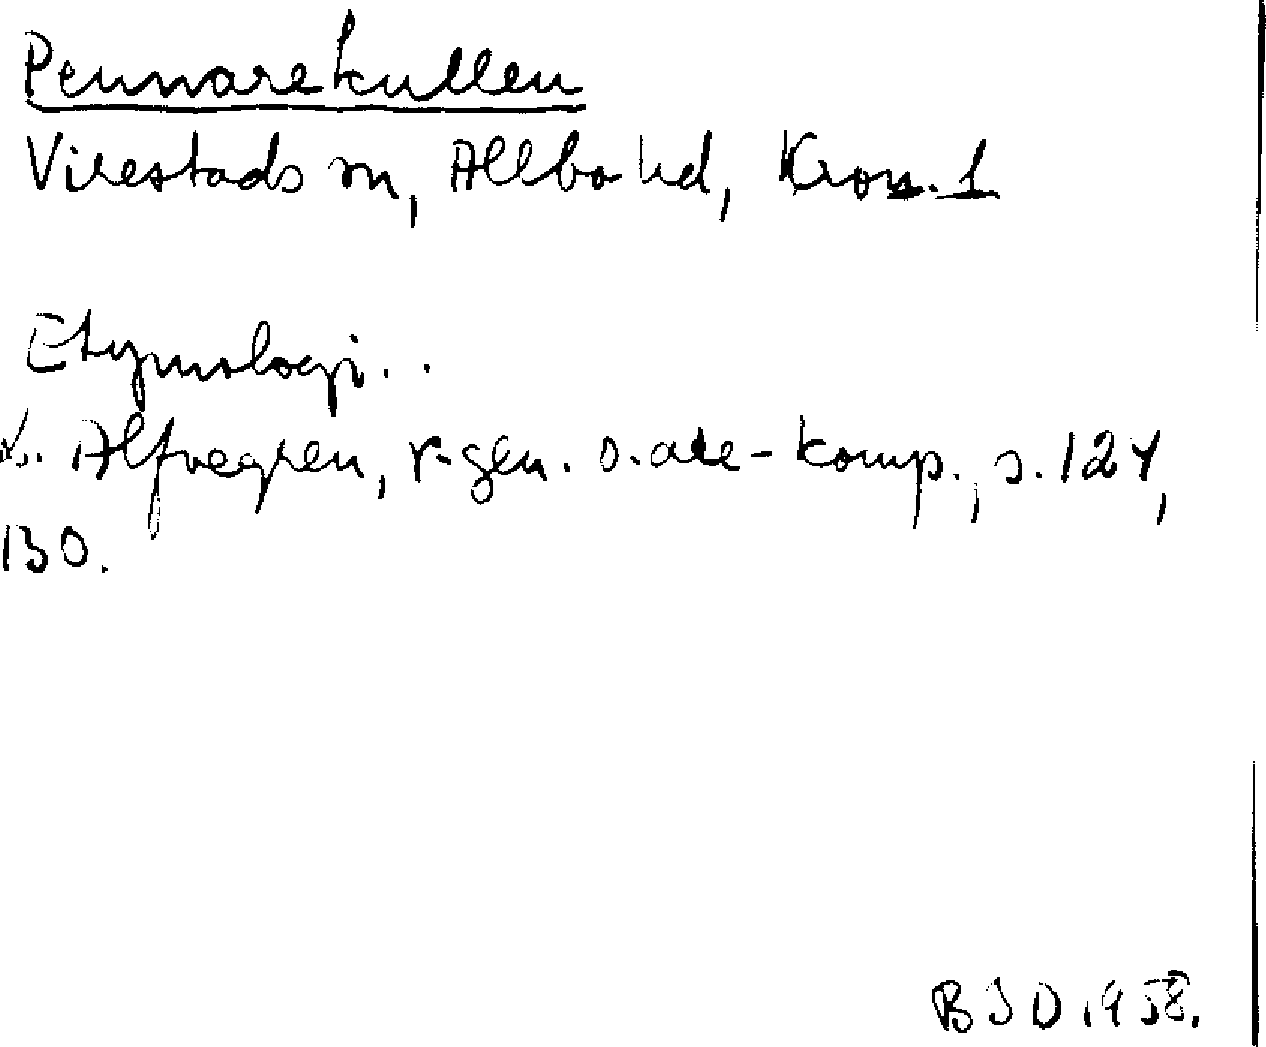 Pennarekullen
Virestads sn, Allbo hd, Kron. l
Etymologi..
L. Alfvegren, r-gen. o. are-komp., s. 124,
130.
BJD 1958.